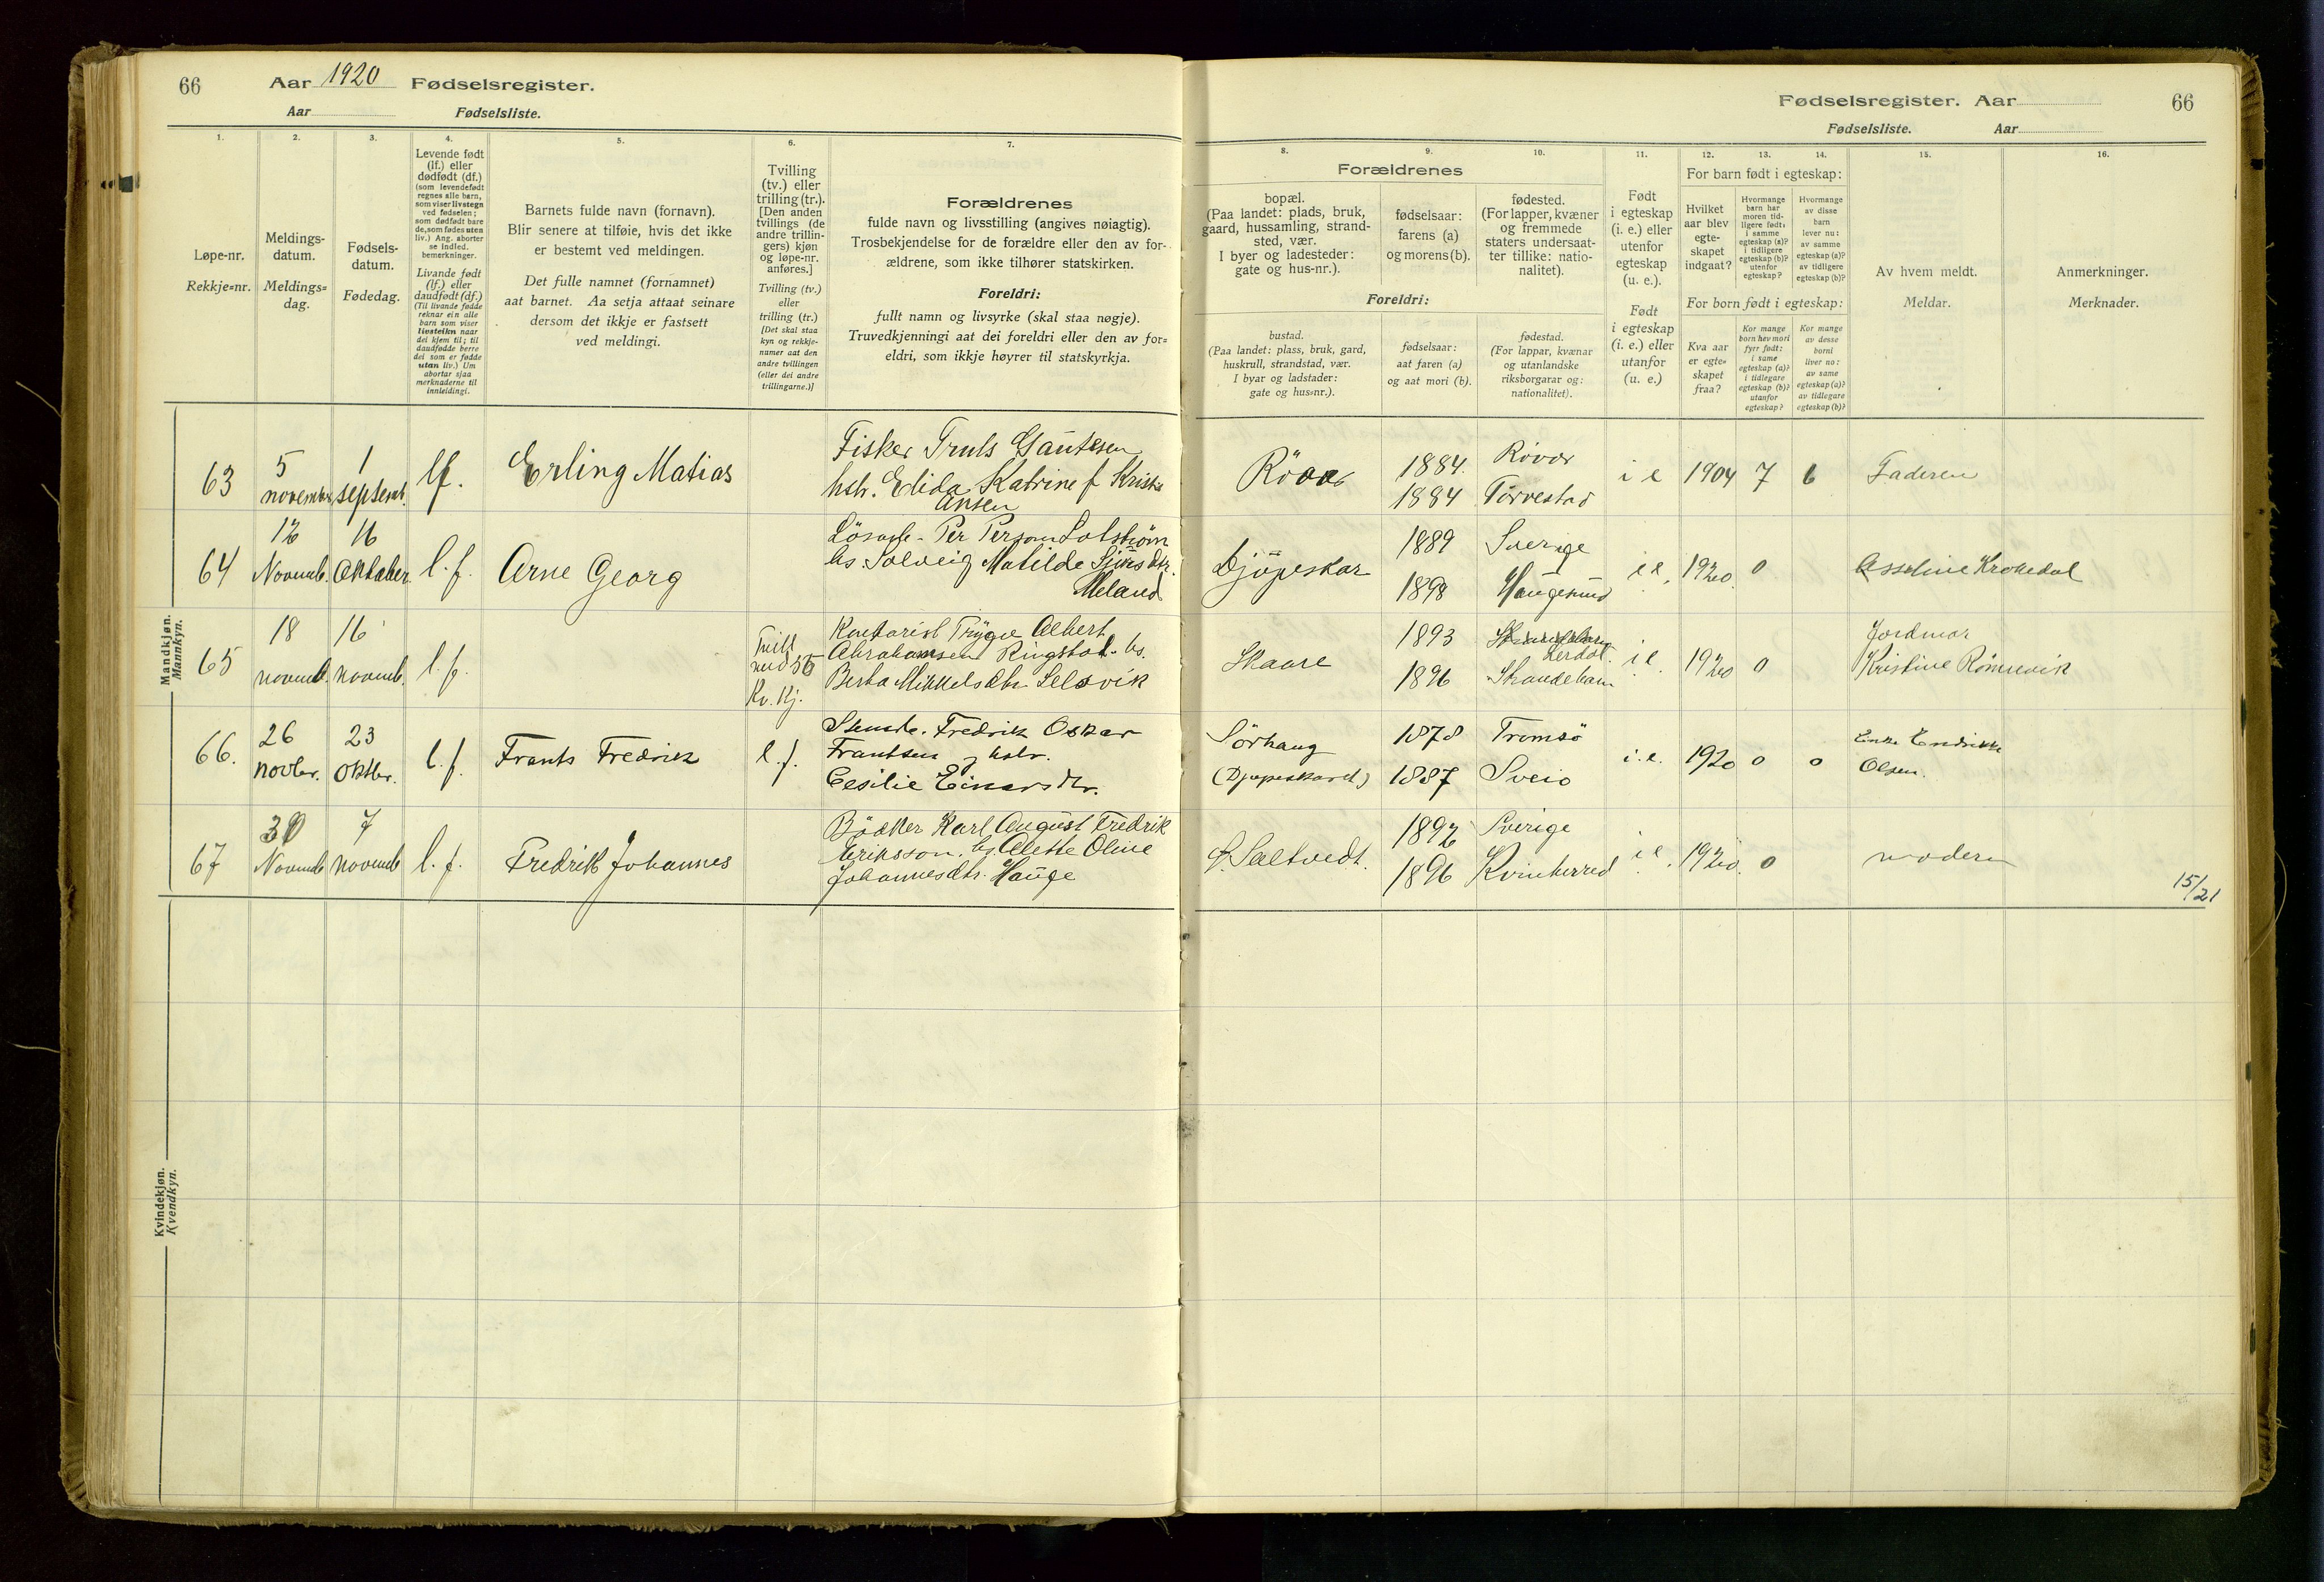 66 Aar 1920 Fødselsregister.
Aar Fødselsliste.
Fødselsregister. Aar 66
Fødselsliste. Aar
1. 2. 3. 4. 5. 6. 7.
Løpe-nr.
Rekkje=nr.
Meldings-
datum.
Meldings=
dag.
Fødsels-
datum.
Fødedag.
Levende født
(lf.) eller
dødfødt (df.)
(som levendefødt
regnes alle barn,
som viser livstegn
ved fødselen;
som dødfødt bare
de, som fødes uten
liv.) Ang. aborter
se indled.
bemerkninger.
Livande født
(lf.) eller
daudfødt (df.)
(Til livande fødde
reknar ein alle
born som viser
livsteikn naar
dei kjem til; til
daudfødde berre
dei som er fødde
utan liv.) Um
abortar sjaa
merknaderne til
innleidingi.
Barnets fulde navn (fornavn).
Blir senere at tilføie, hvis det ikke
er bestemt ved meldingen.
Det fulle namnet (fornamnet)
aat barnet. Aa setja attaat seinare
dersom det ikkje er fastsett
ved meldingi.
Tvilling
(tv.) eller
trilling (tr.).
[Den anden
tvillings (de
andre trillin-
gers) kjøn
og løpe-nr.
anføres.]
Tvilling (tv.)
eller
trilling (tr.)
[Det skal staa
kyn og rekkje-
numer aat den
andre tvillingen
(eller dei andre
trillingarne.)]
Forældrenes
fulde navn og livsstilling (angives nøiagtig).
Trosbekjendelse for de forældre eller den av for-
ældrene, som ikke tilhører statskirken.
Foreldri:
fullt namn og livsyrke (skal staa nøgje).
Truvedkjenningi aat dei foreldri eller den av for=
eldri, som ikkje høyrer til statskyrkja.
8. 9. 10. 11. 12. 13. 14. 15. 16.
Forældrenes
bopæl.
(Paa landet: plads, bruk,
gaard, hussamling, strand-
sted, vær.
I byer og ladesteder:
gate og hus-nr.).
fødselsaar:
farens (a)
og morens (b).
fødested.
(For lapper, kvæner
og fremmede
staters undersaat-
ter tillike: natio-
nalitet).
Foreldri:
bustad.
(Paa landet: plass, bruk, gard,
huskrull, strandstad, vær.
I byar og ladstader:
gate og hus=nr.).
fødselsaar:
aat faren (a)
og aat mori (b).
fødestad.
(For lappar, kvænar
og utanlandske
riksborgarar og:
nationalitet).
Født
i egteskap
(i. e.) eller
utenfor
egteskap
(u. e.).
Født
i egteskap
(i. e.) eller
utanfor
(u. e.)
For barn født i egteskap:
Hvilket
aar blev
egte-
skapet
indgaat?
Hvormange
barn har
moren tid-
ligere født:
i samme
egteskap (a)?
i tidligere
egteskap (b)?
utenfor
egteskap?
Hvormange
av disse
barn
lever nu:
av samme
egteskap (a)?
av tidligere
egteskap (b)?
For born født i egteskap:
Kva aar
er egte=
skapet
fraa?
Kor mange
born hev mori
fyrr født:
i same
egteskap (a)?
i tidlegare
egteskap (b)?
utanfor
egteskap?
Kor mange
av desse
borni
liver no:
av same
egteskap (a)?
av tidlegare
egteskap (b)?
Av hvem meldt.
Meldar.
Anmerkninger.
Merknader.
Mandkjøn.
Mannkyn.
63 5 november 1 septemb. lf. Erling Matias
Fisker Truls Gautesen
hstr. Elida Katrine f Kristi
ansen
Röver 1884. Rövær i e 1904 7 6 Faderen
1884 Torvestad
64 12 Novemb. 16 Oktober l. f. Arne Georg
Per Person
hs. Solveig Matilde dtr.
Meland
Djüpeskar 1889 Sverige i e. 1920 0 Krokedal
1898 Haugesund
65 18 novemb. 16 novemb. l. f.
Tvill
med 56
Kv. Kj.
Kontorist Trygve Albert
Abrahamsen Ringstad. hs.
Berta Mikkelsdtr Selsvik
Skaare 1893 i e. 1920 0 Jordmor
1896 Skaudeham Kristine Rönnevik
66. 26 novbr. 23 Oktbr. l. f. Frants Fredrik l. f.
Fredrik Oskar
Frantsen og hstr.
Cesilie Einarsdtr.
Sörhaug 1878 Tromsö i. e. 1920 0 0 Enke Endrikke
(Djupeskaret) 1887 Sveio Olsen.
67 30 Novemb 7 novemb l. f. Fredrik Johannes
Bödker Karl August Fredrik
Eriksson. hs Alette Oline
Johannesdtr. Hauge
Saltvedt. 1892 Sverige i e. 1920. 0 moderen
1896 Kvinherred
15/21
Kvindekjøn.
Kvendkyn.